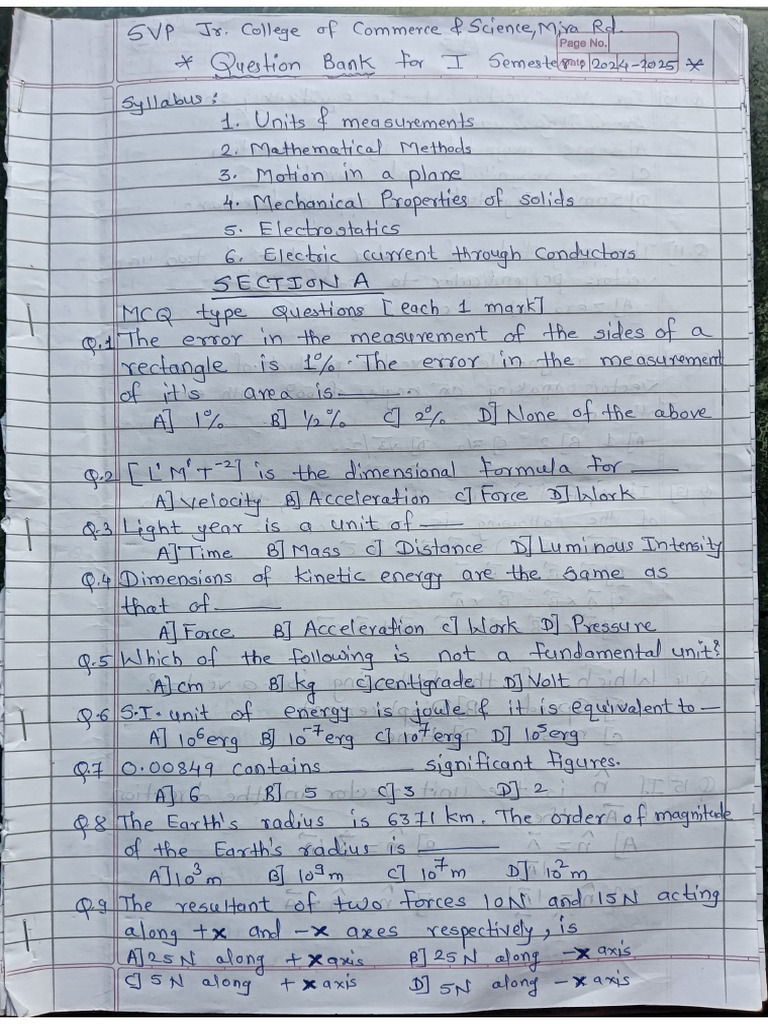 SVP Jr. College of Commerce & Science, Mira Rd.
Page No.
* Question Bank for I Semester 2024-2025 *
Syllabus:
1. Units & measurements
2. Mathematical Methods
3. Motion in a plane
4. Mechanical Properties of solids
5. Electrostatics
6. Electric current through Conductors
SECTION A
MCQ type Questions [each 1 mark]
Q.1 The error in the measurement of the sides of a
rectangle is 1%. The error in the measurement
of it's area is
A] 1% B] 1/2% C] 2% D] None of the above
Q.2 [L¹M¹T⁻²] is the dimensional formula for
A] Velocity B] Acceleration C] Force D] Work
Q.3 Light year is a unit of
A] Time B] Mass C] Distance D] Luminous Intensity
Q.4 Dimensions of kinetic energy are the same as
that of
A] Force B] Acceleration C] Work D] Pressure
Q.5 Which of the following is not a fundamental unit?
A] cm B] kg C] centigrade D] Volt
Q.6 S.I. unit of energy is joule & it is equivalent to —
A] 10⁶erg B] 10⁻⁷erg C] 10⁷erg D] 10⁵erg
Q.7 0.00849 contains significant figures.
A] 6 B] 5 C] 3 D] 2
Q.8 The Earth's radius is 6371 km. The order of magnitude
of the Earth's radius is
A] 10³m B] 10⁹m C] 10⁷m D] 10²m
Q.9 The resultant of two forces 10N and 15N acting
along +x and -x axes respectively, is
A] 25N along +x axis B] 25N along -x axis
C] 5N along +x axis D] 5N along -x axis